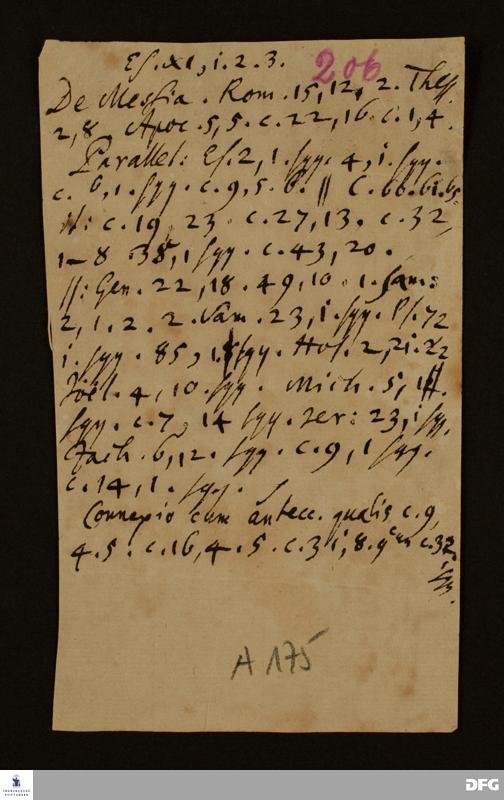 Es. XI, 1. 2. 3.
206
De Messia. Rom. 15, 12, 2. Thess.
2, 8. Apoc. 5, 5. c. 22, 16. c. 1, 4.
Parallel: Es. 2, 1. sqq. 4, 1. sqq.
c. 6, 1. sqq. c. 9, 5. 6. || C. 60. 61. 65.
it: c. 19, 23. c. 27, 13. c. 32,
1-8 35, 1 sqq. c. 43, 20.
||: Gen. 22, 18. 49, 10. 1. Sam:
2, 1. 2. 2. Sam. 23, 1. sqq. Ps. 72
1. sqq. 85, 1. sqq. Hos. 2, 21. 22
Joel. 4, 10. sqq. Mich. 5, 1
sqq. c. 7, 14 sqq. Jer: 23, 1 sqq.
Zach. 6, 12. sqq. c. 9, 1 sqq.
c. 14, 1. sqq.
Connexio cum antecc. qualis c. 9,
4. 5. c. 16, 4. 5. c. 31, 8. 9 cum c. 32,
1. sqq.
A 175
FRANCKESCHE
STIFTUNGEN
DFG